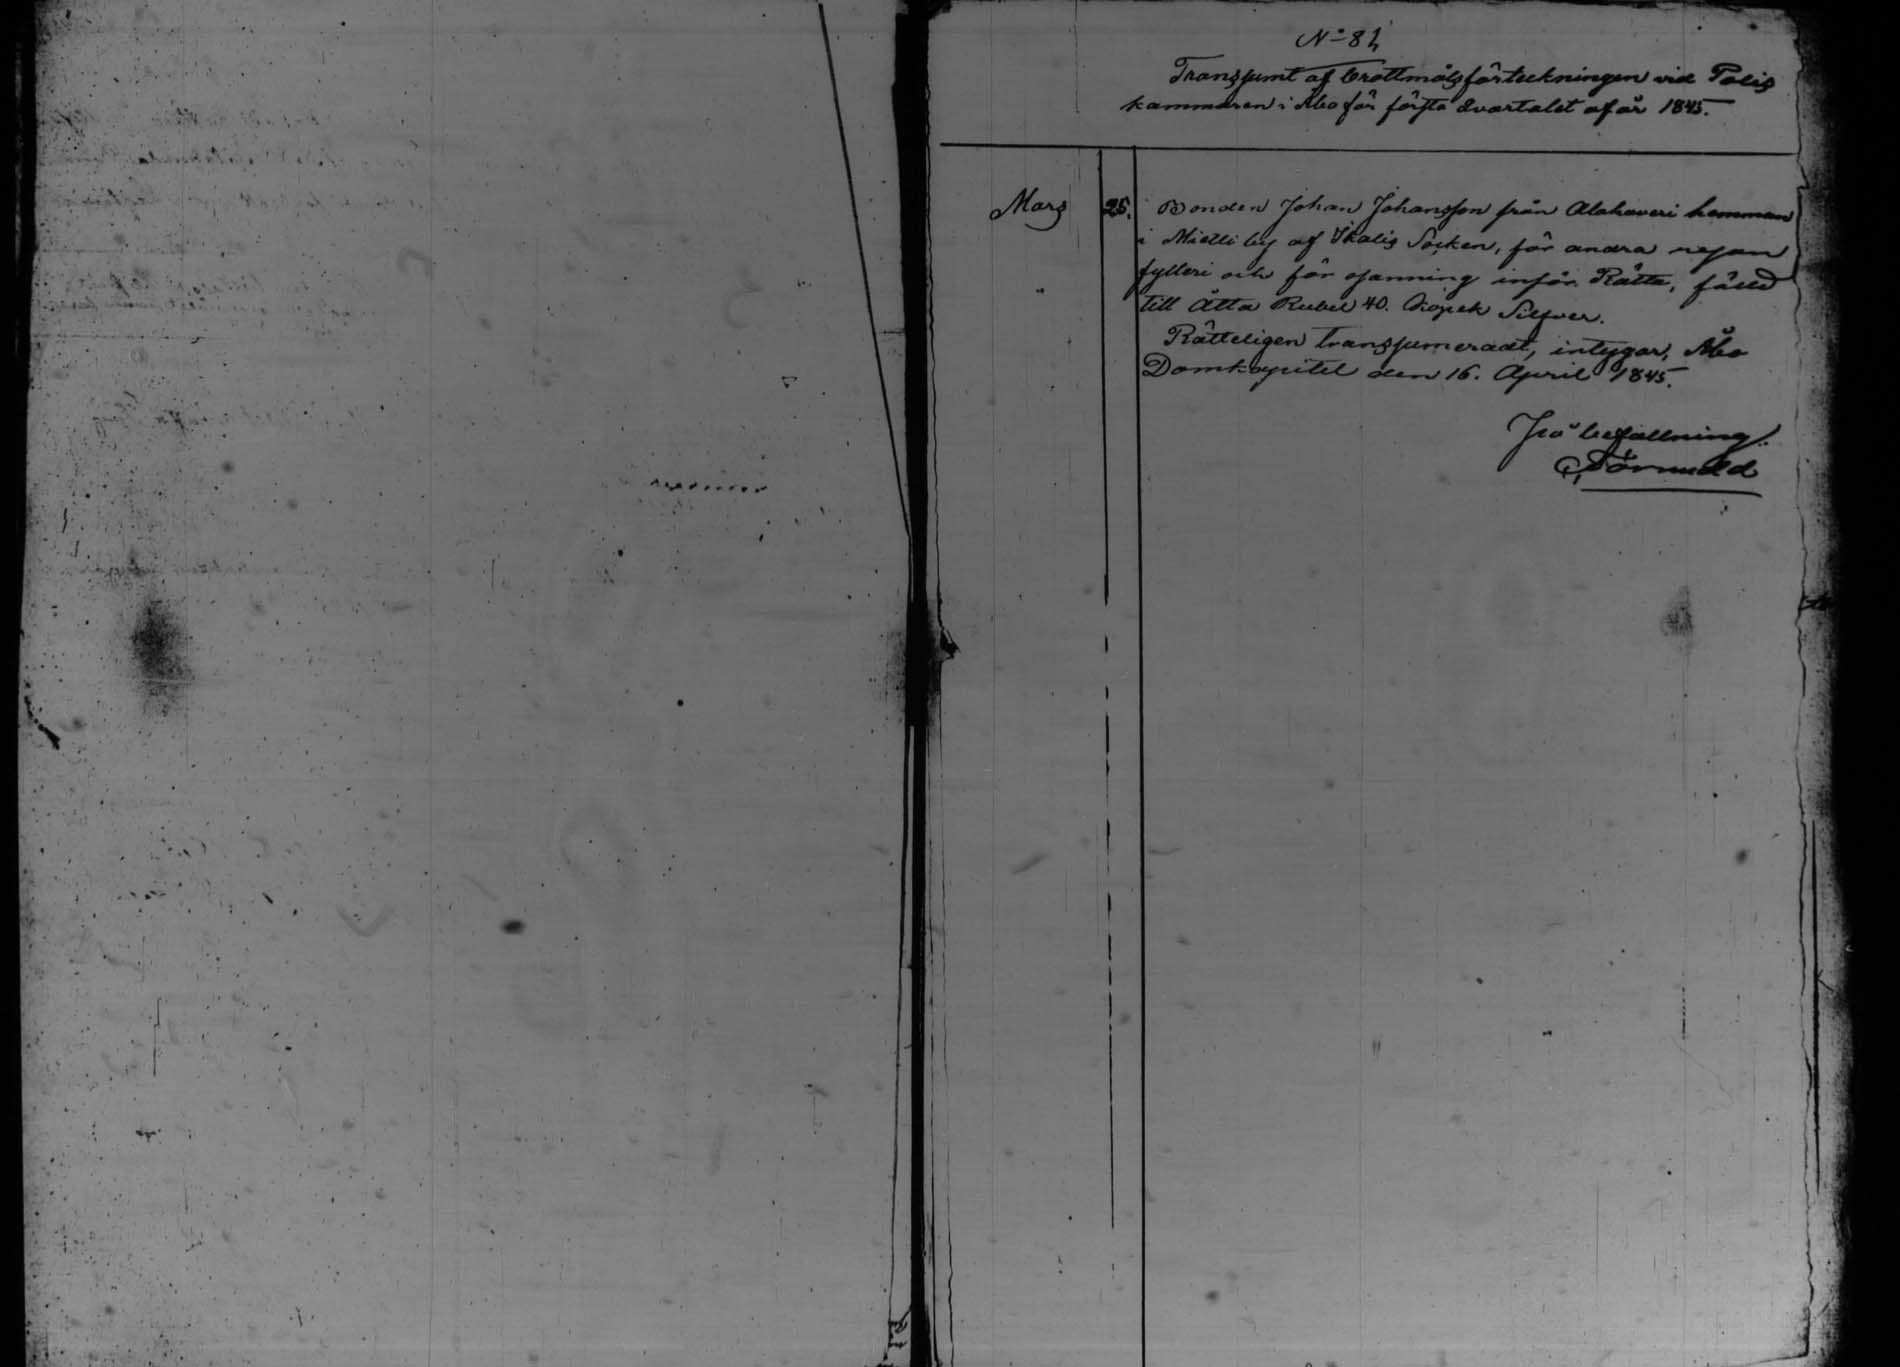 Transsumt af Brottmålsförteckningen vid Polis
kammaren i Åbo för första Qvartalet af år 1845.
Mars 25. Bonden Johan Johansson från Alahaveri hemman
i Mietti by af Ikalis Socken, för andra resan
fylleri och för osanning inför Rätta, fälld
till Åtta Rubel 40. Kopek Silfver.
Rätteligen transsumeradt, intygar, Åbo
Domkapitel den 16. April 1845.
På befallning